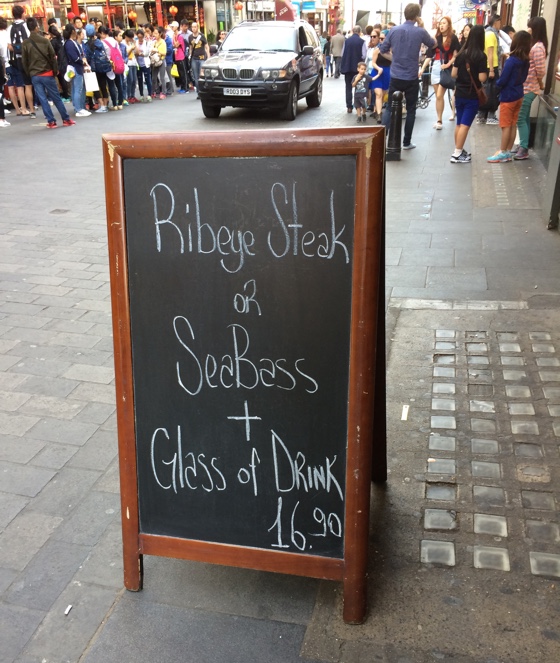 RO03 DYS
Ribeye Steak
OR
SeaBass
+
Glass of DRINK
16.90